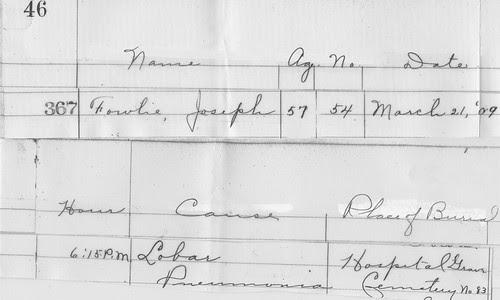 46
Name Ag. No. Date
367 Fowlie, Joseph 57 54 March 21, '29
Hour Cause Place of Burial
6:15 P.M. Lobar Hospital Grav
Pneumonia Cemetery No 83